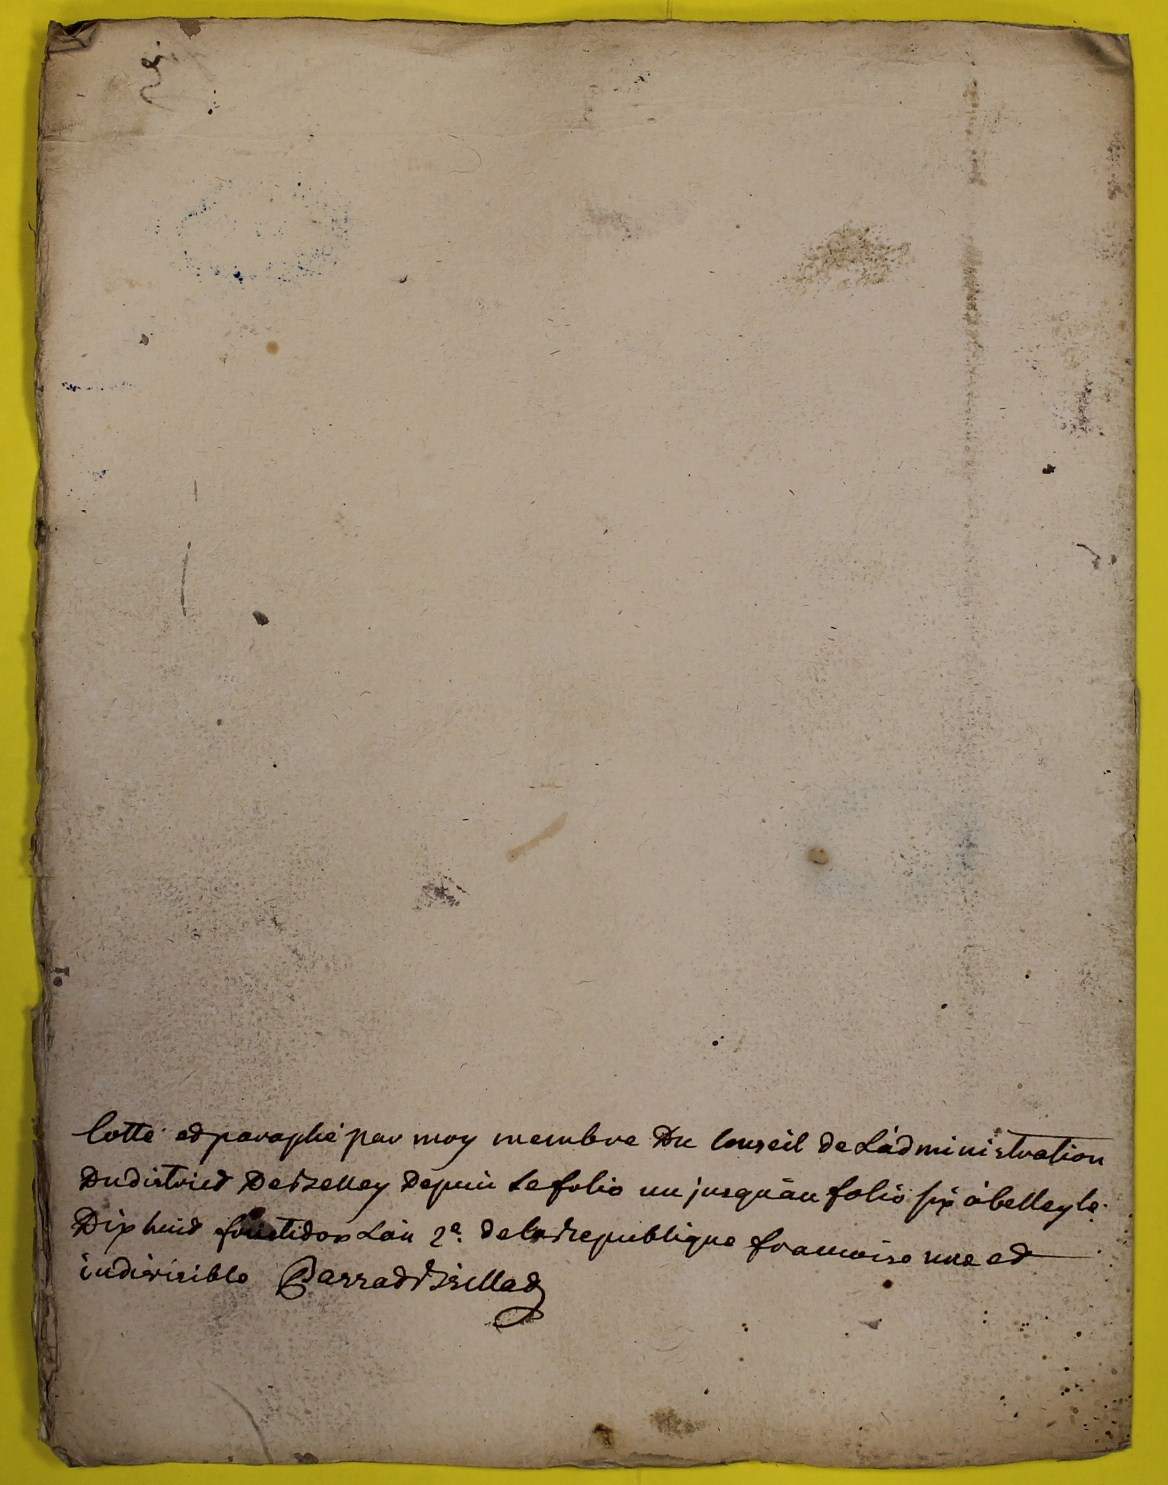 Cotté et paraphé par moy membre Du Conseil de L'administration
Du district De Belley Depuis Le folio un jusqu'au folio six à belley le
Dix huit fructidor L'an 2e. de la République francoise une et
indivisible